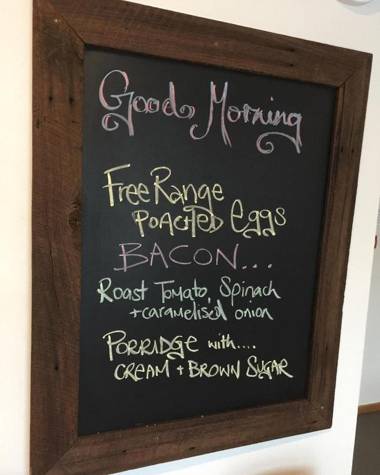 Good Morning
Free Range
POACHED eggs
BACON...
Roast Tomato, Spinach
+caramelised onion
PORRIDGE with....
CREAM + BROWN SUGAR